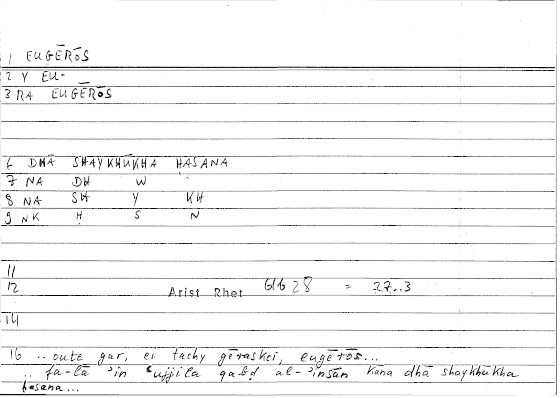 1 EUGĒRŌS
2 Y EU-
3 RA EUGĒRŌS
6 DHĀ SHAYKHŪKHA HASANA
7 NA DH W -
8 NA SH Y KH
9 NK H S N
11
12 Arist Rhet 61b28 = 27..3
14
16 .. oute gar, ei tachy gēraskei, eugērōs...
.. fa-lā 'in ʿujjila qabḍ al-'insān kāna dhā shaykhūkha
hasana...